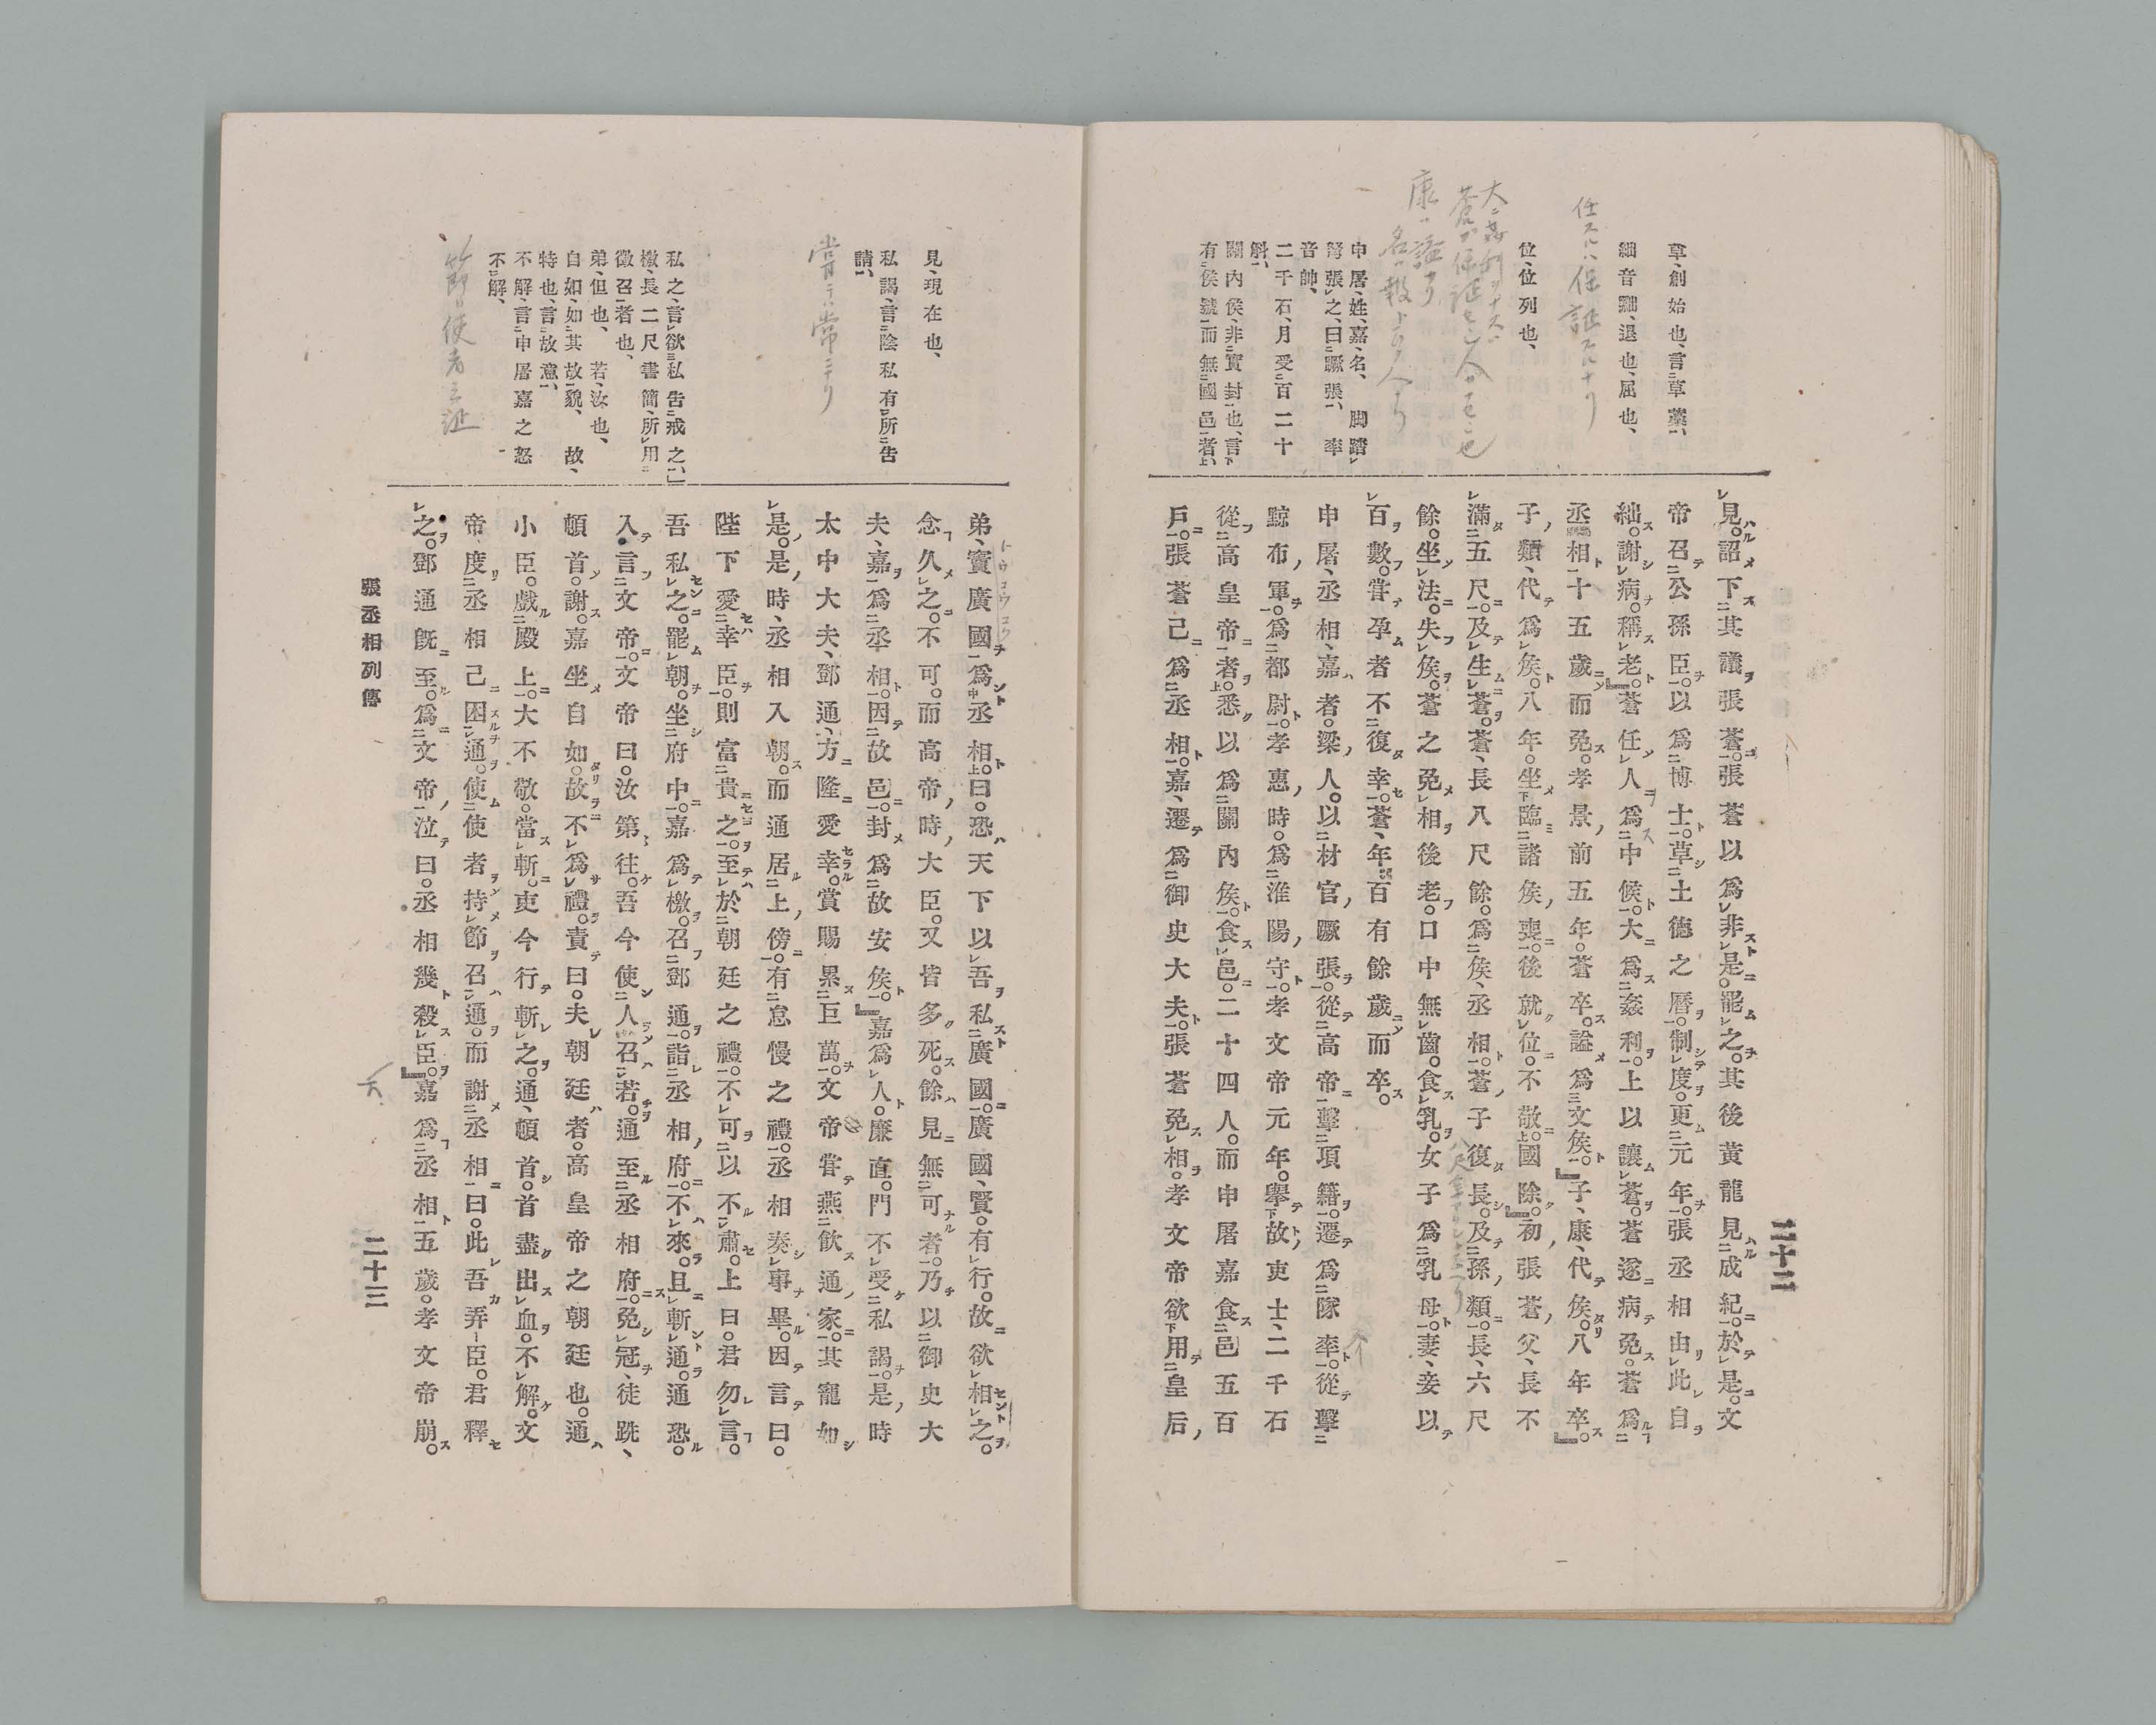 草、創始也、言草藁、
絀音黜、退也、屈也、
任スルハ保証スルナリ
位、位列也、
申屠、姓、嘉、名、脚踏
弩張之、曰蹶張、率
音帥、
二千石、月受百二十
斛、
關內侯、非實封也、言
有侯號而無國邑者、
見。詔下其議張蒼。張蒼以爲非是。罷之。其後黃龍見成紀。於是。文
帝召公孫臣。以爲博士。草土德之曆。制度。更元年。張丞相由此自
絀。謝病。稱老。蒼任人爲中候。大爲姦利。上以讓蒼。蒼遂病免。蒼爲
丞相十五歲而免。孝景前五年。蒼卒。謚爲文侯。子、康、代侯。八年卒。
子類、代爲侯。八年。坐臨諸侯喪。後就位。不敬。國除。初張蒼父、長不
滿五尺。及生蒼。蒼、長八尺餘。爲侯、丞相。蒼子復長。及孫類。長、六尺
餘。坐法。失侯。蒼之免相後老。口中無齒。食乳。女子爲乳母。妻、妾以
百數。嘗孕者不復幸。蒼、年百有餘歲而卒。
申屠、丞相、嘉者。梁人。以材官蹶張。從高帝擊項籍。遷爲隊率。從擊
黥布軍。爲都尉。孝惠時。爲淮陽守。孝文帝元年。擧故吏士、二千石
從高皇帝者。悉以爲關內侯。食邑。二十四人。而申屠嘉食邑五百
戶。張蒼已爲丞相。嘉、遷爲御史大夫。張蒼免相。孝文帝欲用皇后
二十二
見、現在也、
私謁、言陰私有所告
請、
嘗テハ常ニナリ
私之、言欲私告戒之、
檄、長二尺書簡、所用
徵召者也、
弟、但也、若、汝也、
自如、如其故貌、故、
特也、言故意、
不解、言申屠嘉之怒
不解、
弟、竇廣國爲丞相。曰。恐天下以吾私廣國。廣國、賢。有行。故欲相之。
念久之。不可。而高帝時大臣。又皆多死。餘見無可者。乃以御史大
夫、嘉爲丞相。因故邑。封爲故安侯。嘉爲人。廉直。門不受私謁。是時
太中大夫、鄧通、方隆愛幸。賞賜累巨萬。文帝嘗燕飮通家。其寵如
是。是時、丞相入朝。而通居上傍。有怠慢之禮。丞相奏事畢。因言曰。
陛下愛幸臣。則富貴之。至於朝廷之禮。不可以不肅。上曰。君勿言。
吾私之。罷朝。坐府中。嘉爲檄。召鄧通。詣丞相府。不來。且斬通。通恐。
入言文帝。文帝曰。汝第往。吾今使人召若。通至丞相府。免冠、徒跣、
頓首。謝。嘉坐自如。故不爲禮。責曰。夫朝廷者。高皇帝之朝廷也。通
小臣。戲殿上。大不敬。當斬。吏今行斬之。通、頓首。首盡出血。不解。文
帝度丞相已困通。使使者持節召通。而謝丞相曰。此吾弄臣。君釋
之。鄧通既至。爲文帝泣曰。丞相幾殺臣。嘉爲丞相五歲。孝文帝崩。
張丞相列傳
二十三